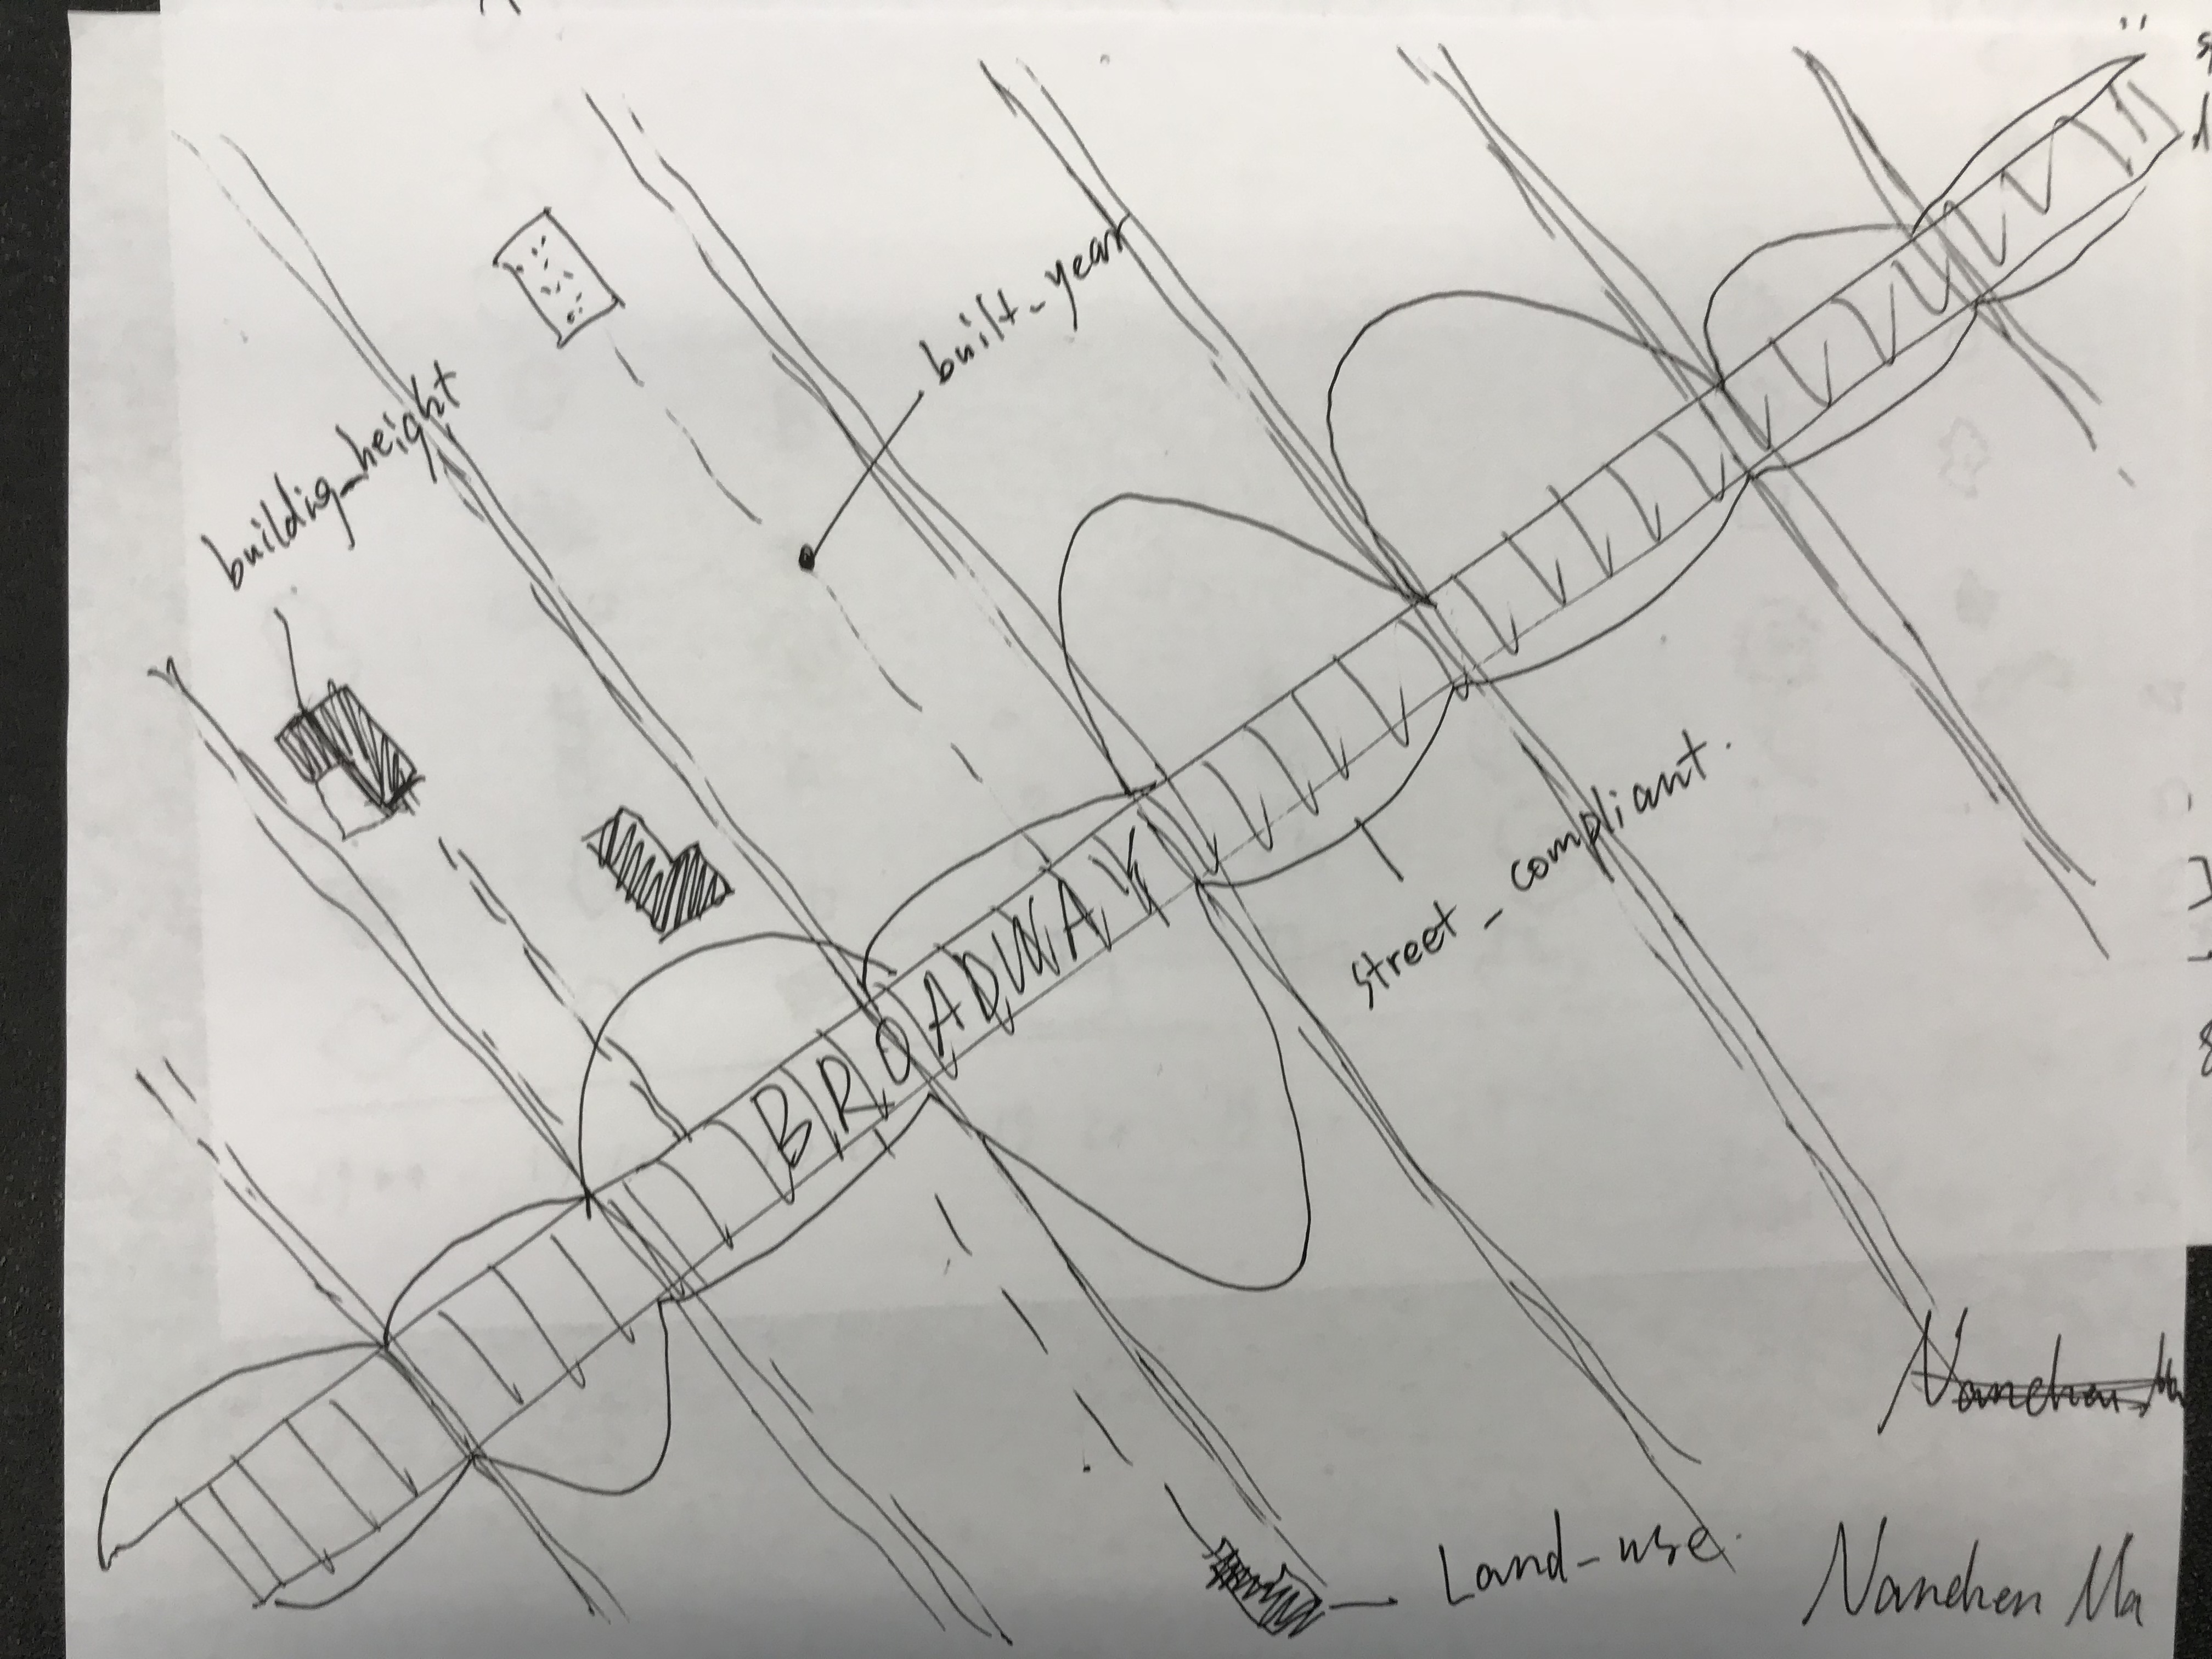 building_height
built_year
BROADWAY
street_compliant.
Land_use.
Nanchen Ma